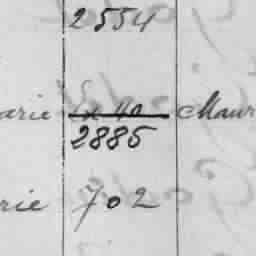 2554
arie Maur
2885
rie 702